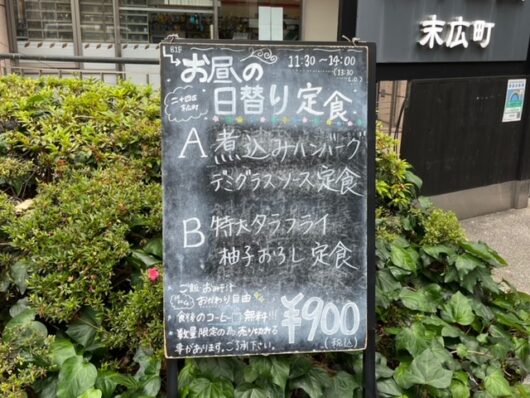 末広町
B1F
お昼の
11:30〜14:00
(13:30
L.O.)
日替り定食
A 煮込みハンバーグ
デミグラスソース定食
B 特大タラフライ
柚子おろし定食
ご飯 お味噌汁
おかわり自由
食後のコーヒー 無料!!!
数量限定の為売り切れる
事があります。ご了承下さい。
¥900
(税込)